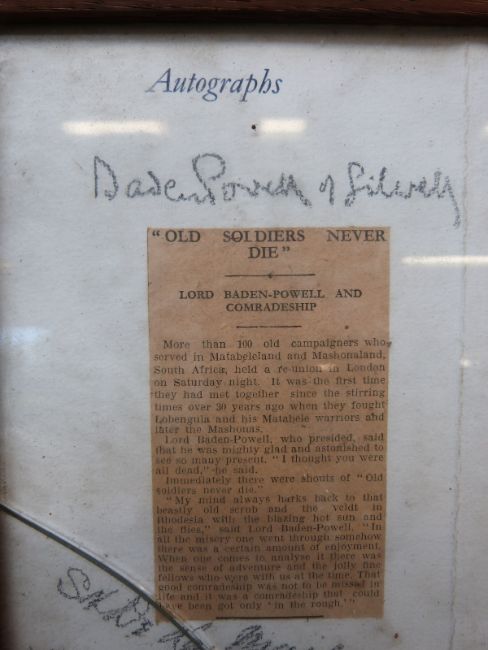 Autographs
Baden Powell of Gilwell
"OLD SOLDIERS NEVER
DIE"
LORD BADEN-POWELL AND
COMRADESHIP
More than 100 old campaigners who
served in Matabeleland and Mashonaland,
South Africa, held a re-union in London
on Saturday night. It was the first time
they had met together since the stirring
times over 30 years ago when they fought
Lobengula and his Matabele warriors and
later the Mashonas.
Lord Baden-Powell, who presided, said
that he was mighty glad and astonished to
see so many present. "I thought you were
all dead," he said.
Immediately there were shouts of "Old
soldiers never die."
"My mind always harks back to that
beastly old scrub and the veldt in
Rhodesia with the blazing hot sun and
the flies," said Lord Baden-Powell. "In
all the misery one went through somehow
there was a certain amount of enjoyment.
When one comes to analyse it there was
the sense of adventure and the jolly fine
fellows who were with us at the time. That
good comradeship was not to be missed in
life and it was a comradeship that could
have been got only 'in the rough.'"